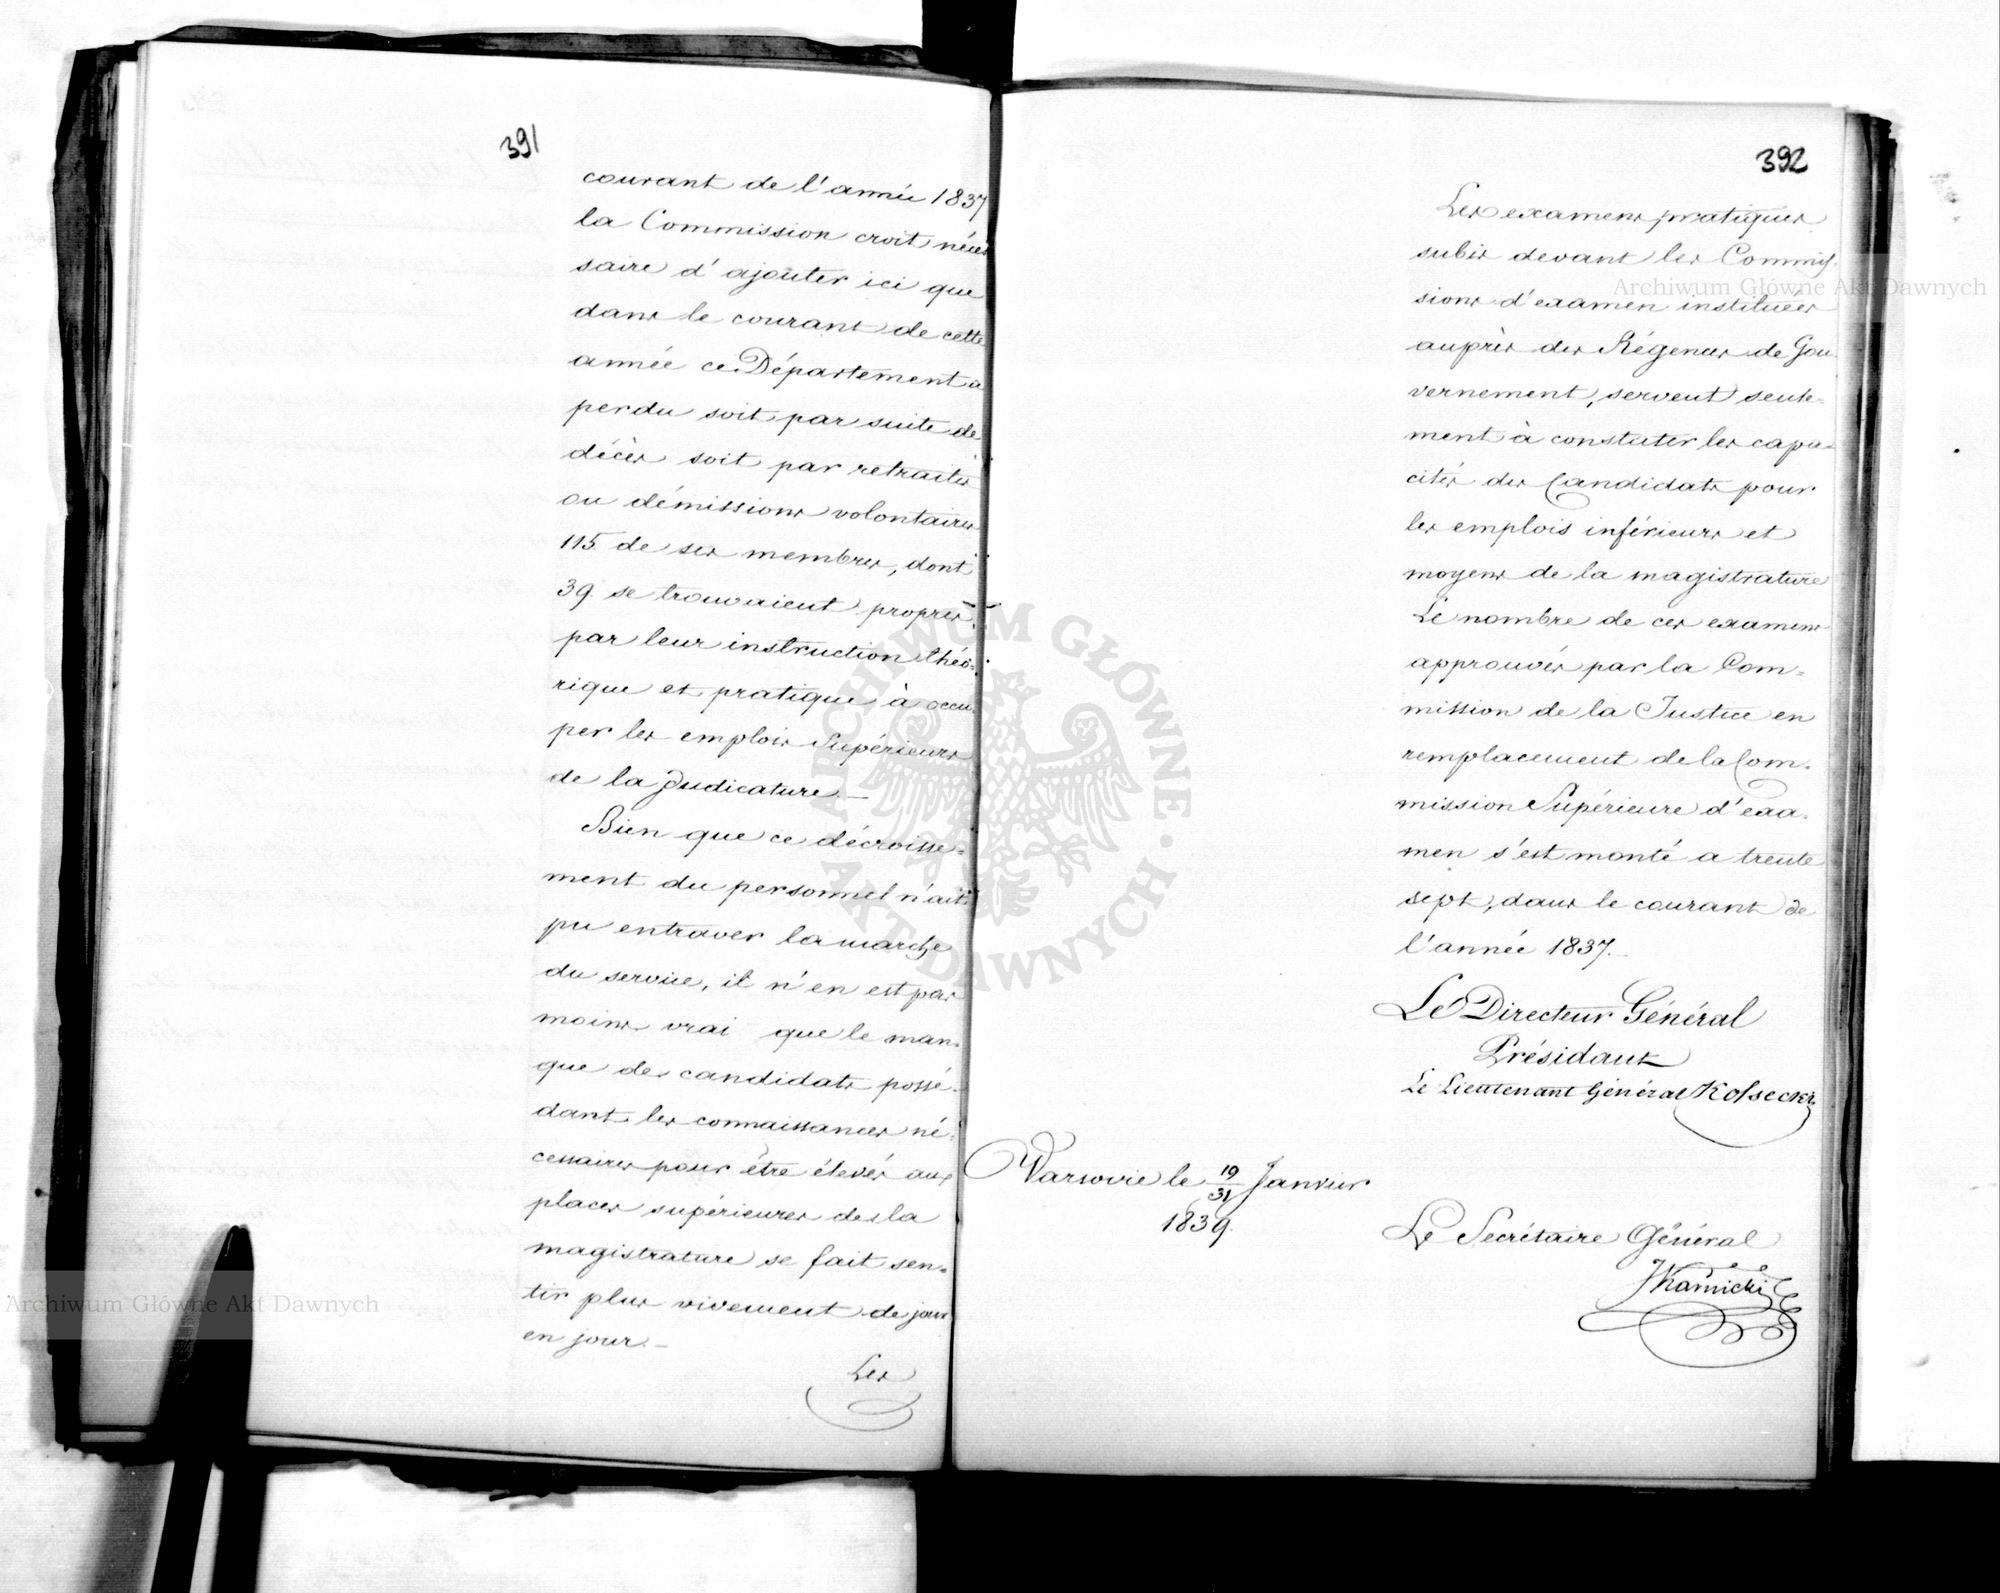 391
courant de l'année 1837
la Commission croit néces
saire d'ajouter ici que
dans le courant de cette
année ce Département a
perdu soit par suite de
décès soit par retraites
ou démissions volontaires
115 de ses membres, dont
39 se trouvaient propres
par leur instruction théo-
rique et pratique à occu
per les emplois Supérieurs
de la Judicature.—
Bien que ce décroisse-
ment du personnel n'ait
pu entraver la marche
du service, il n'en est pas
moins vrai que le man-
que de candidats possé-
dant les connaissances né-
cessaires pour être élevés aux
places supérieures de la
magistrature se fait sen-
tir plus vivement de jour
en jour.—
Les
392
Les examens pratiques
subis devant les Commis-
sions d'examen instituées
auprès des Régences de Gou
vernement, servent seule-
ment à constater les capa-
cités des Candidats pour
les emplois inférieurs et
moyens de la magistrature
Le nombre de ces examens
approuvés par la Com-
mission de la Justice en
remplacement de la Com-
mission Supérieure d'exa-
men s'est monté a trente
sept, dans le courant de
l'année 1837.—
Le Directeur Général
Présidant
Le Lieutenant Général Kossecki
Varsovie le 19/31 Janvier
1839.
Le Secrétaire Général
JKarnicki
Archiwum Główne Akt Dawnych
Archiwum Główne Akt Dawnych
ARCHIWUM GŁÓWNE AKT DAWNYCH